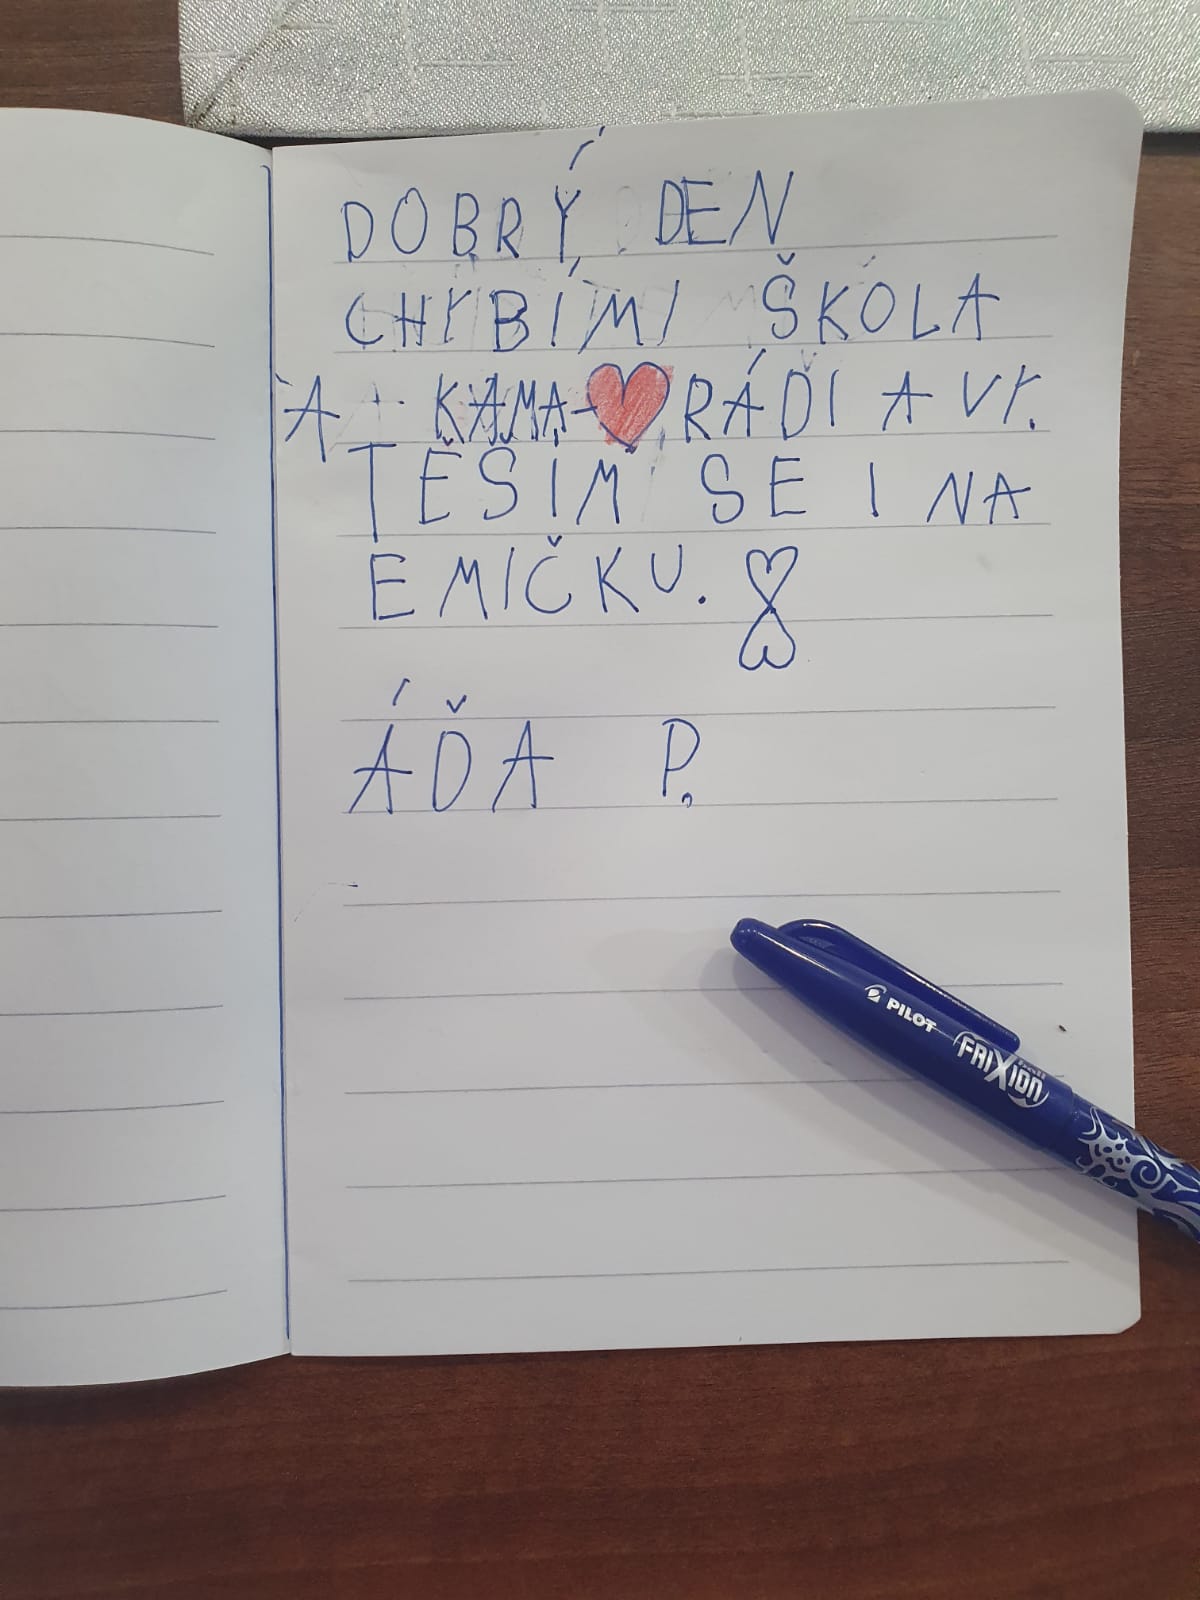 DOBRÝ DEN
CHYBÍ MI ŠKOLA
A KAMA-❤RÁDI A VY.
TĚŠÍM SE I NA
EMIČKU.
ÁĎA P.
PILOT
FRIXION
ball